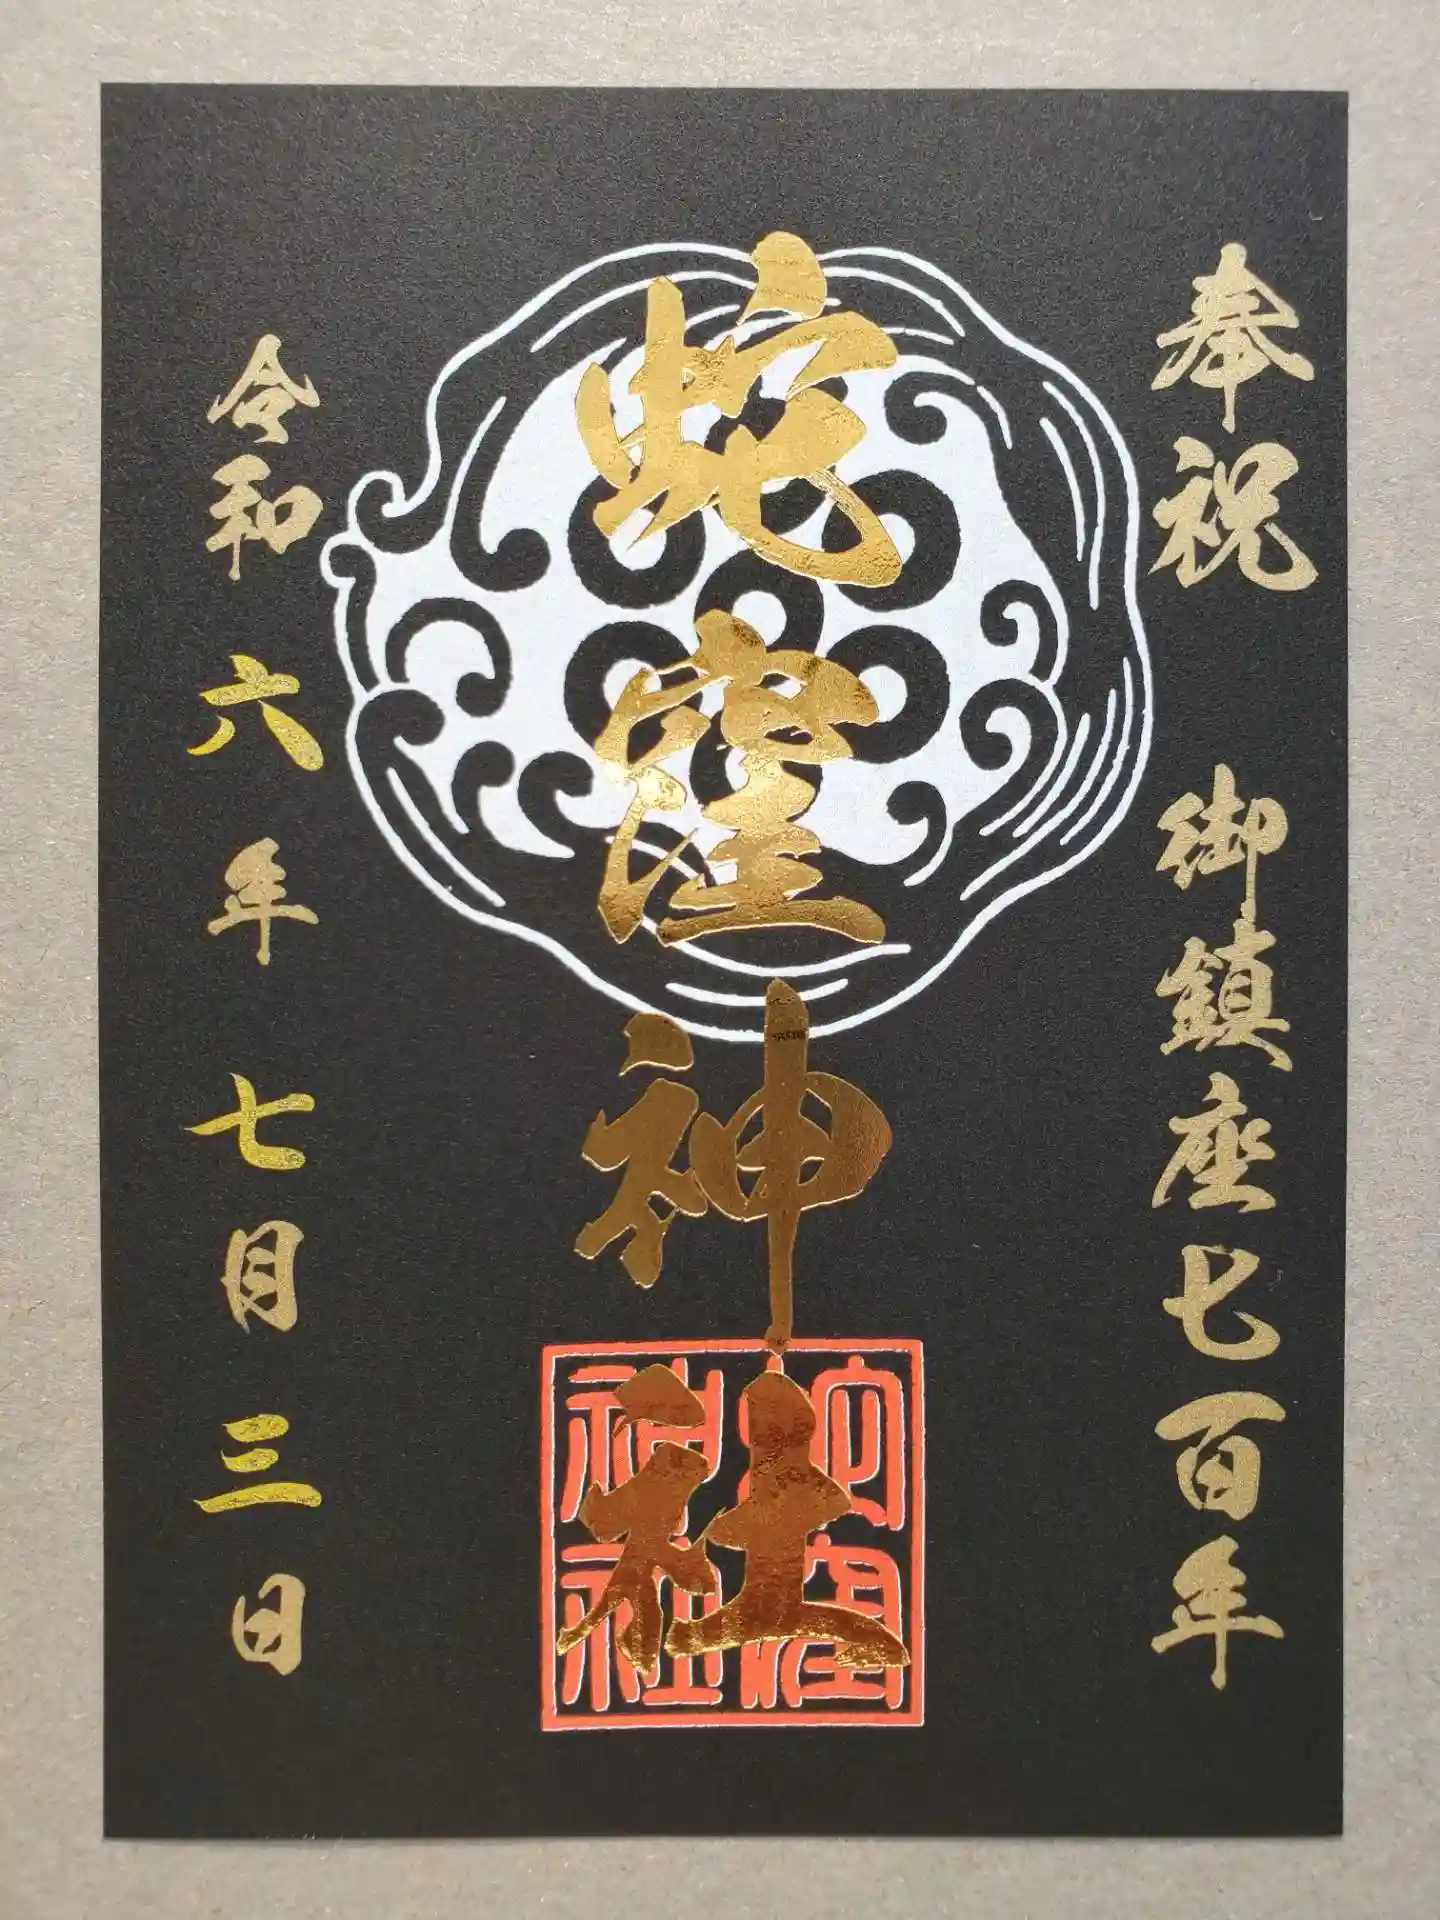 奉祝 御鎮座七百年
蛇窪神社
蛇窪神社
令和六年七月三日